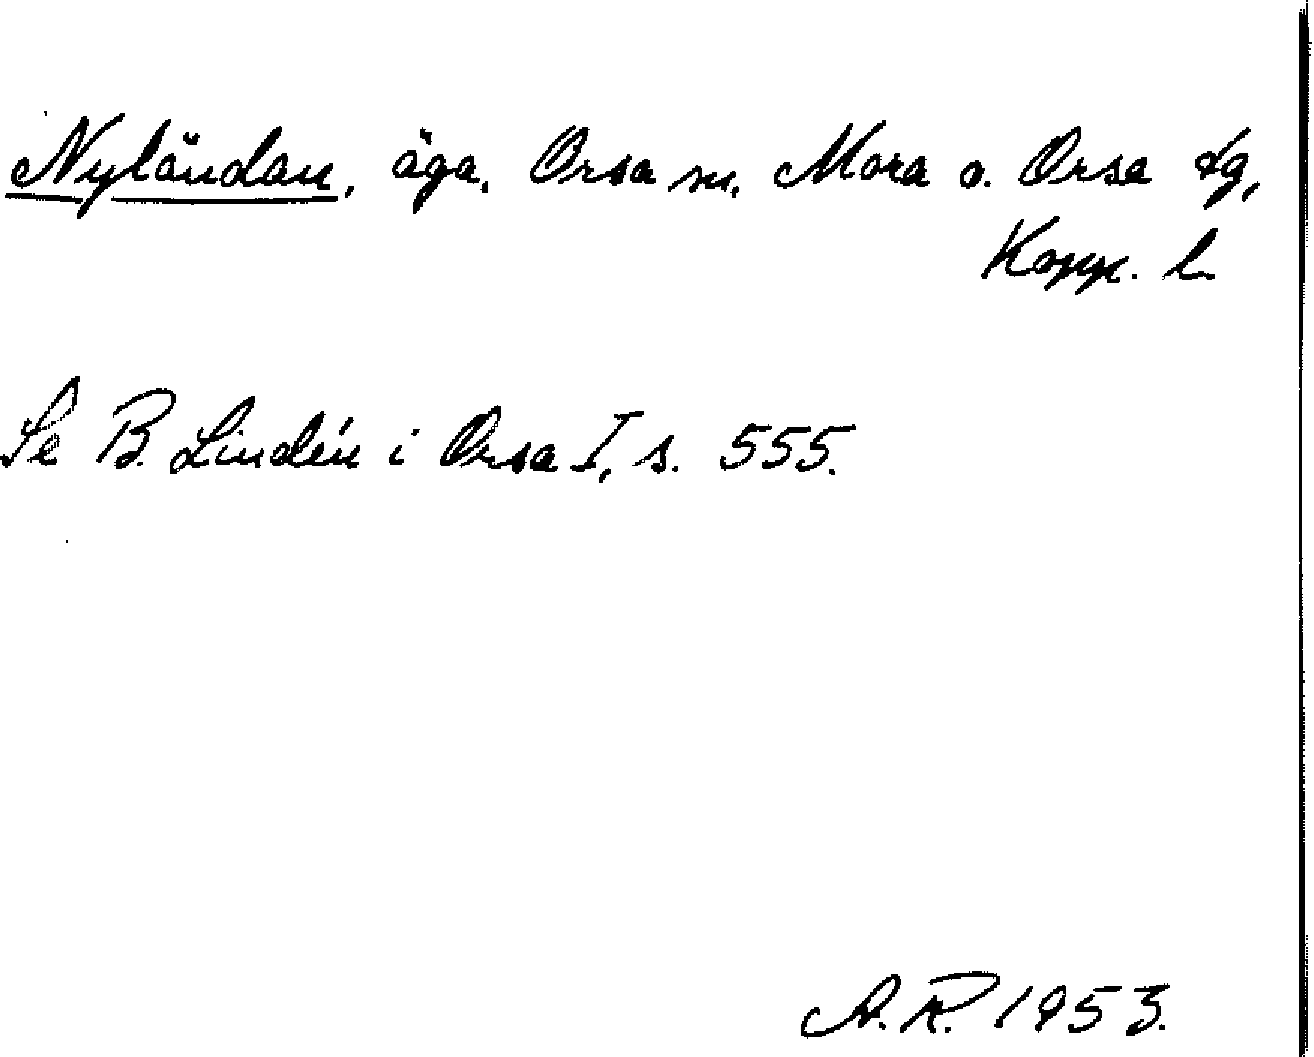 Nyländan, äga, Orsa sn, Mora o. Orsa tg,
Kopp. l.
Se B. Lindén i Orsa I, s. 555.
A.R. 1953.